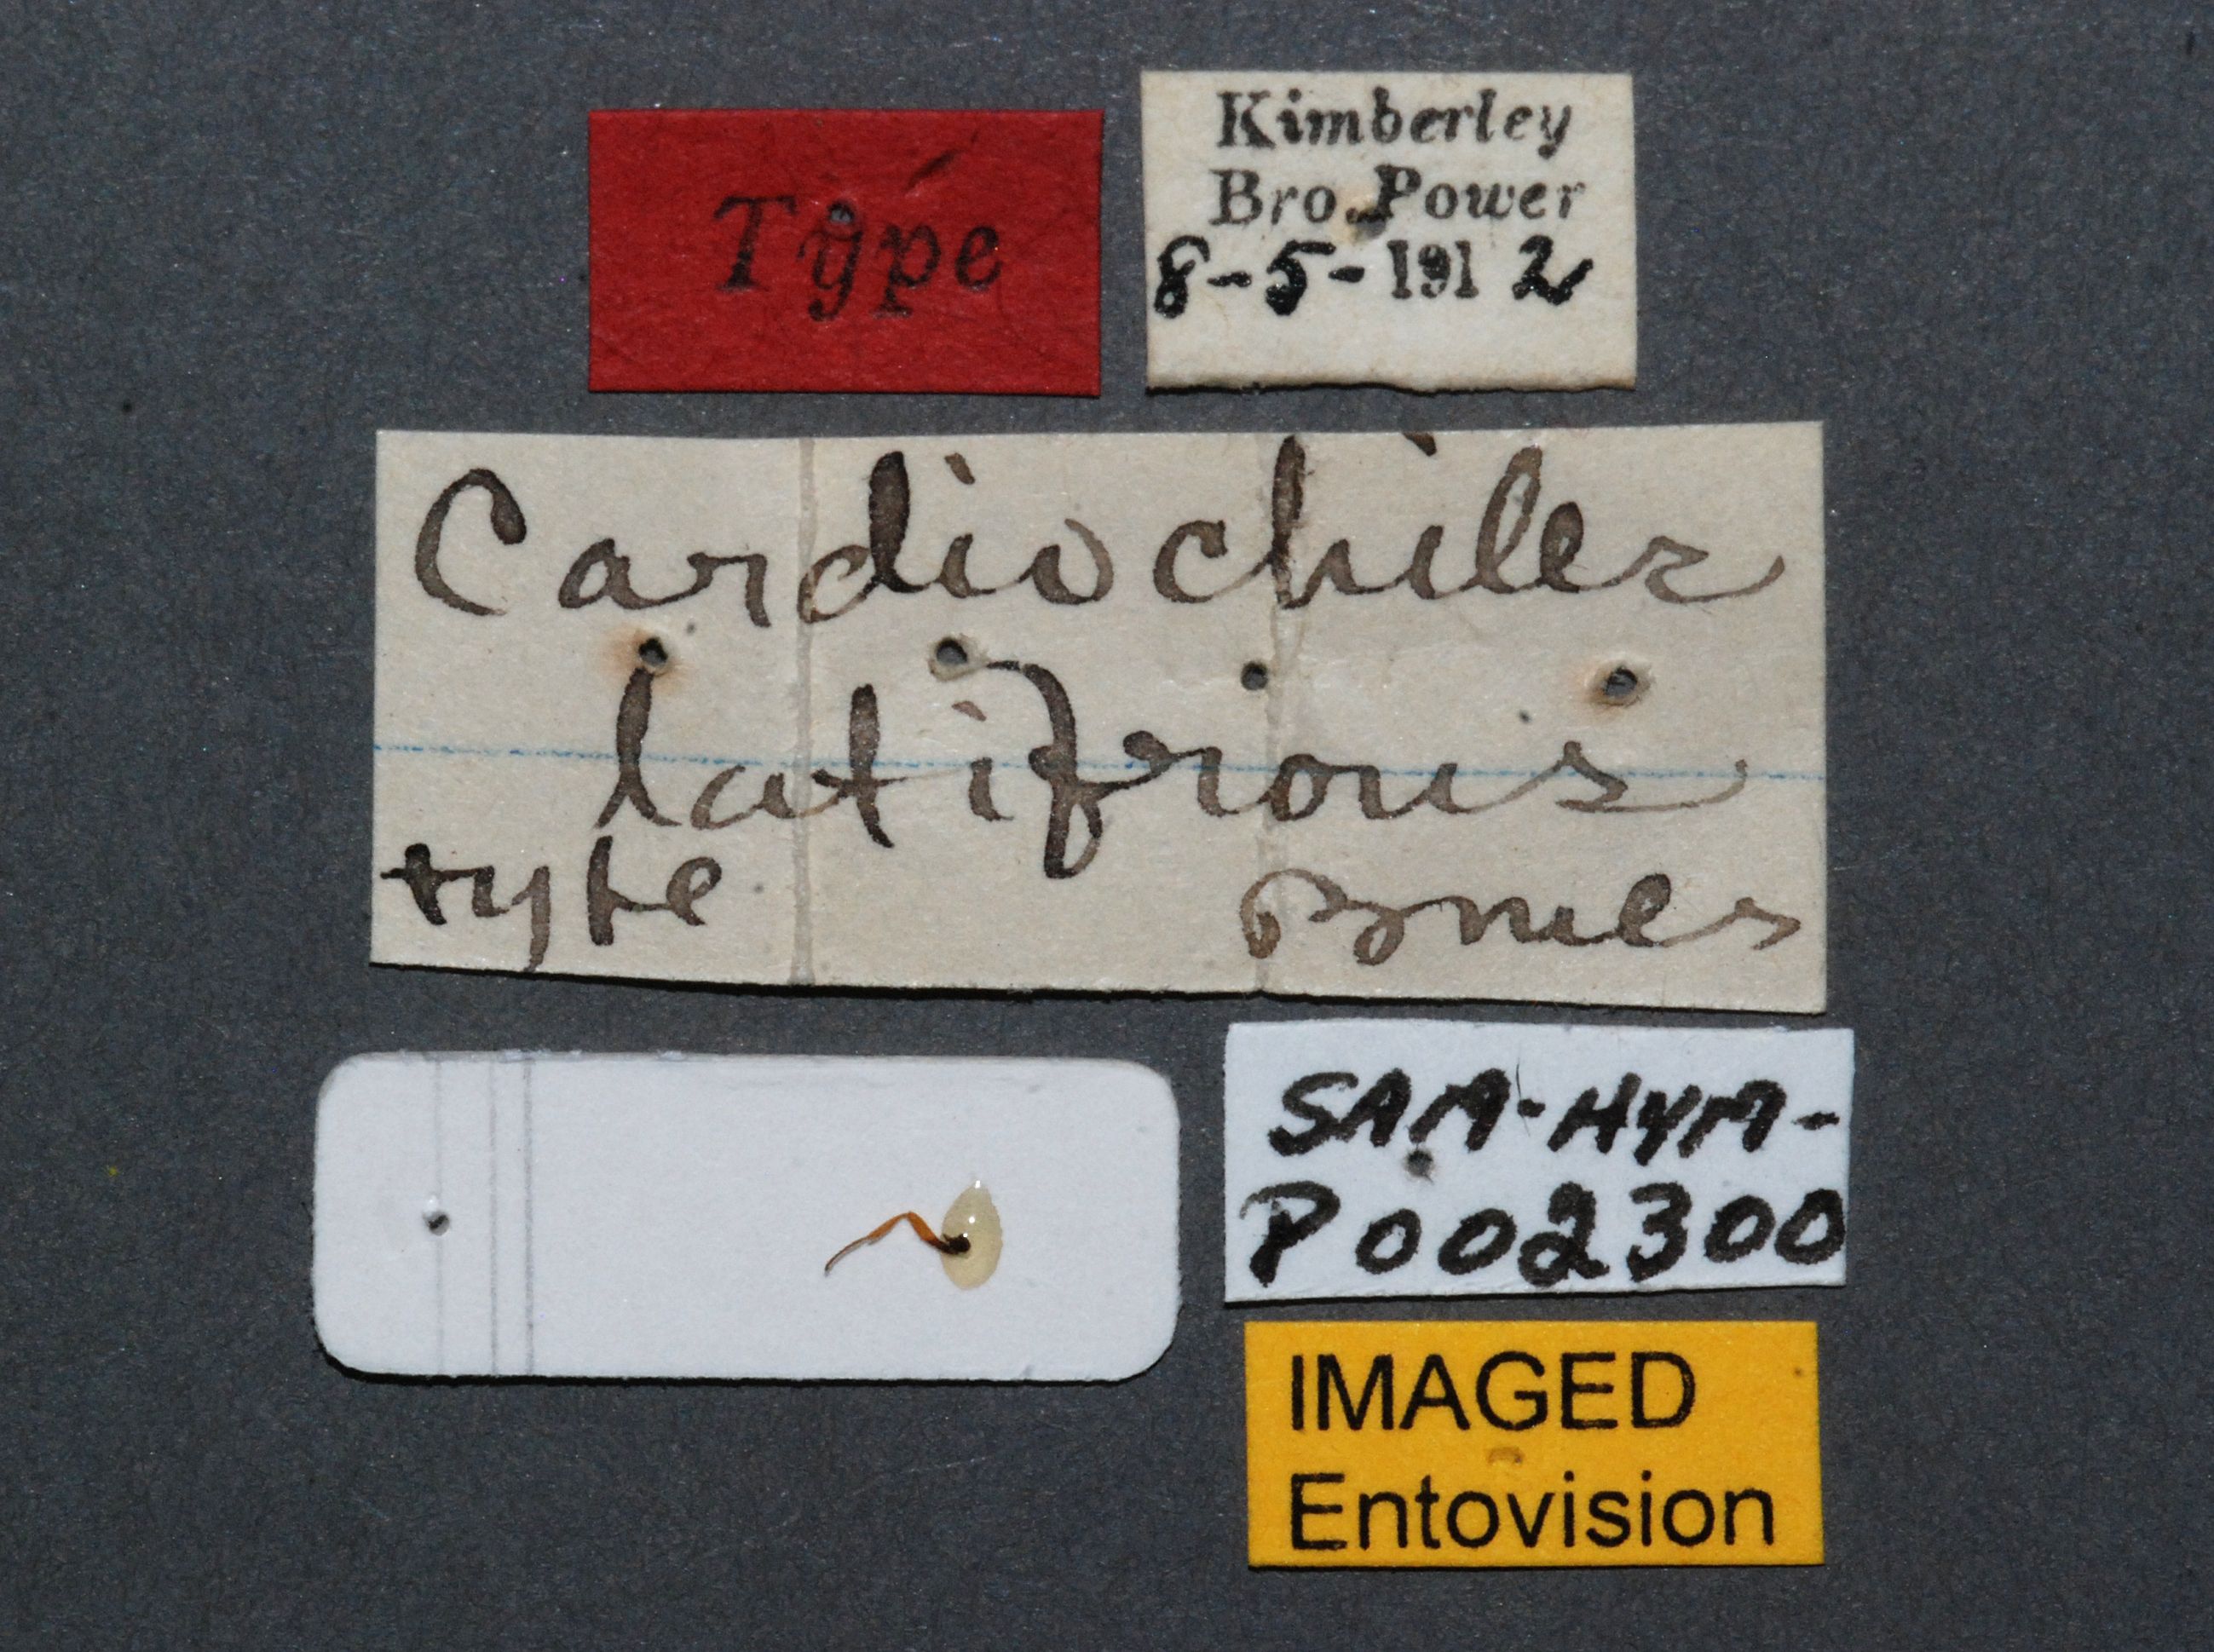 Type
Kimberley
Bro. Power
8-5-1912
Cardiochiles
latifrons
type Brues
SAM-HYM-
P002300
IMAGED
Entovision